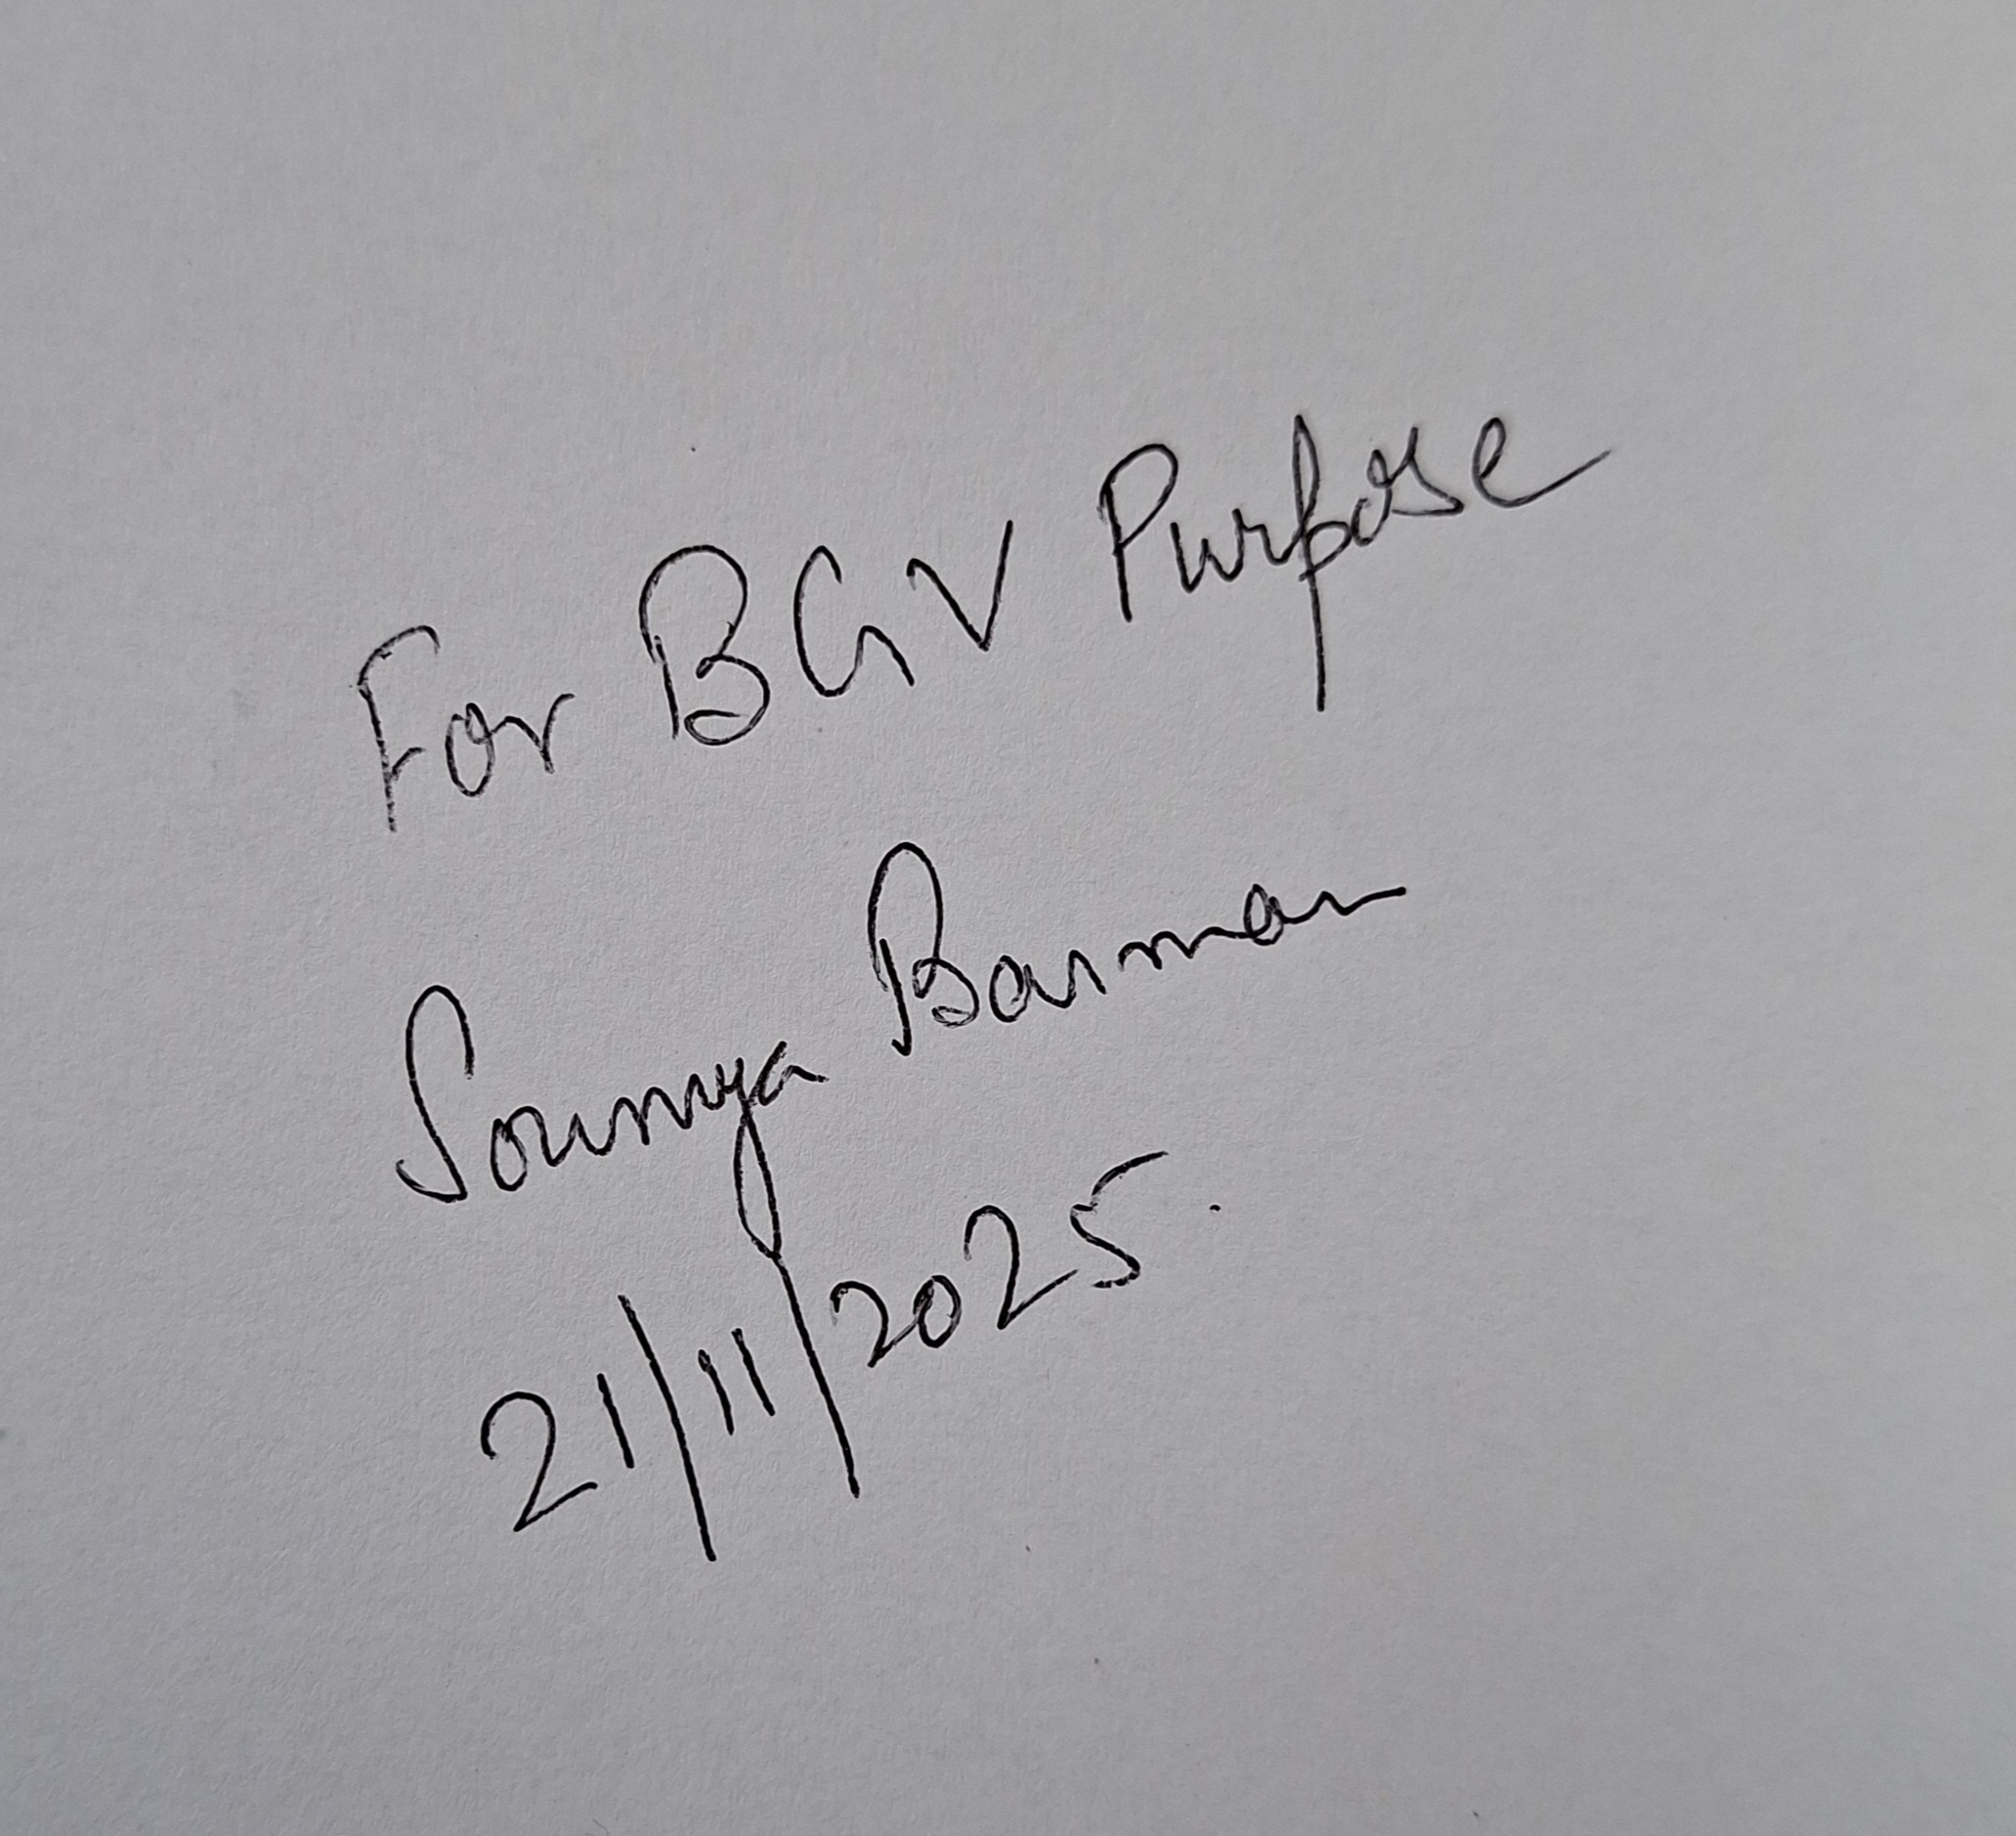 For BGV Purpose
Soumya Barman
21/11/2025.